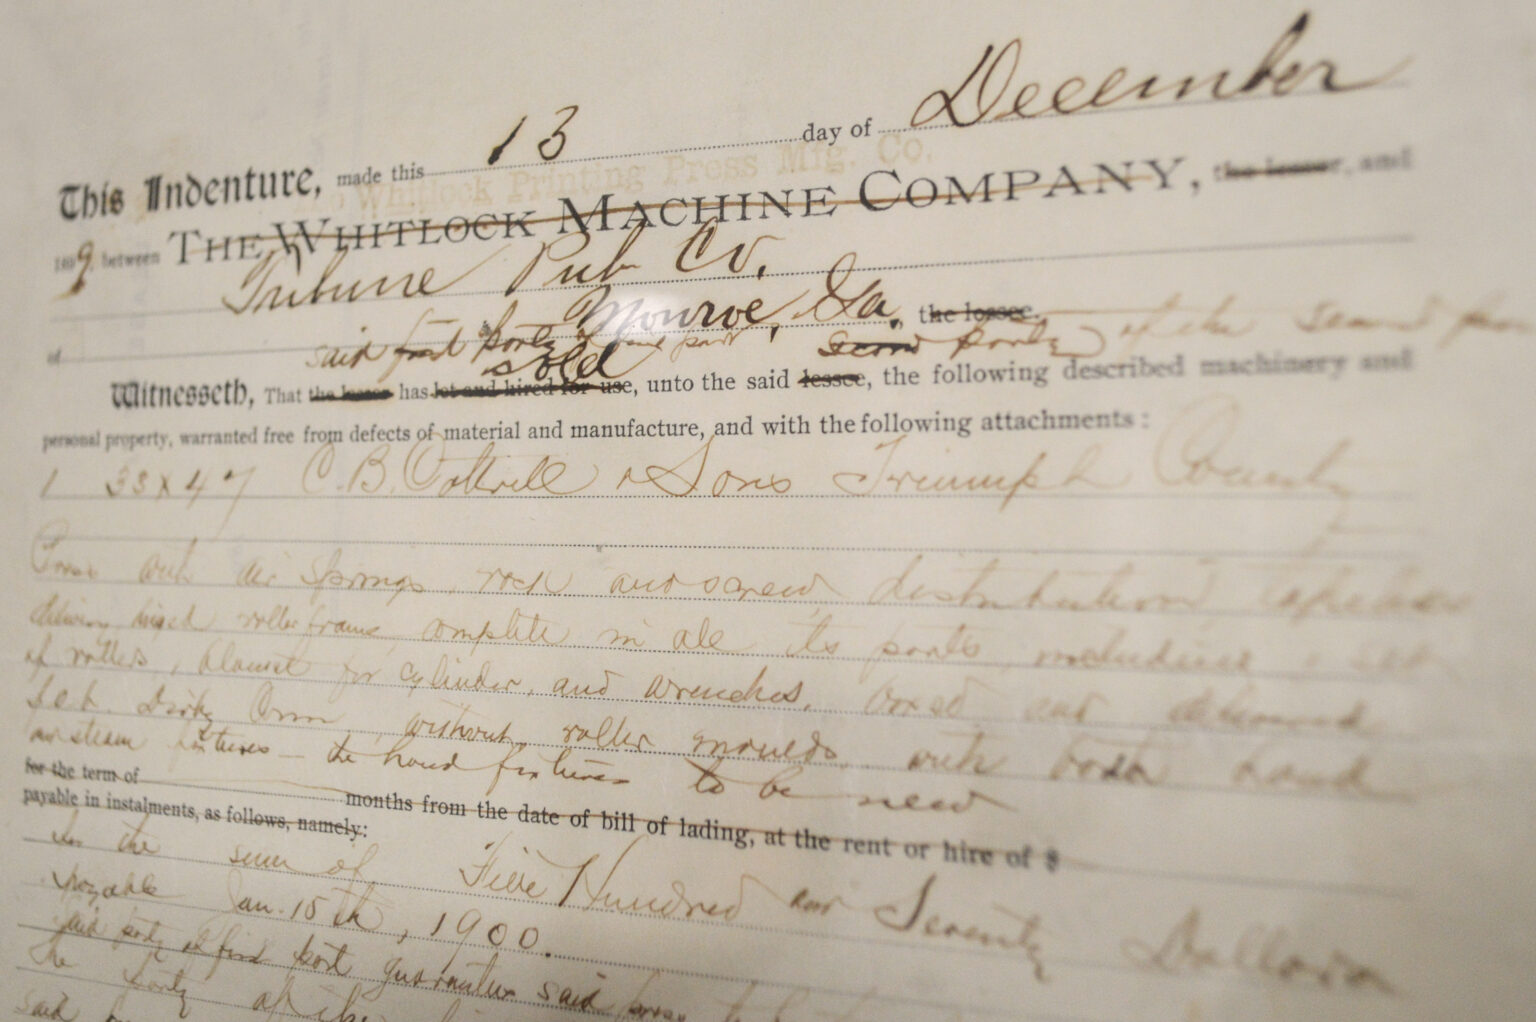 This Indenture, made this 13 day of December
Whitlock Printing Press Mfg. Co.
1899, between THE WHITLOCK MACHINE COMPANY, the lessor, and
Tribune Pub Co.
of Monroe, Ga, the lessee.
said first party of one part second party of the second part
sold
Witnesseth, That the lessor has let and hired for use, unto the said lessee, the following described machinery and
personal property, warranted free from defects of material and manufacture, and with the following attachments:
1 33 x 47 C. B. Cottrell & Sons Triumph Country
Press with air springs, rack and screw distribution, tapeless
delivery, hinged roller frame, complete in all its parts, including a set
of rollers, blanket for cylinder, and wrenches, boxed and delivered
f.o.b. without roller moulds, with both hand
and steam fixtures — the hand fixtures to be new
for the term of months from the date of bill of lading, at the rent or hire of $
payable in instalments, as follows, namely:
In the sum of Five Hundred and Seventy Dollars
payable Jan. 15th, 1900.
said party of first part guarantees said press
the party of the
said